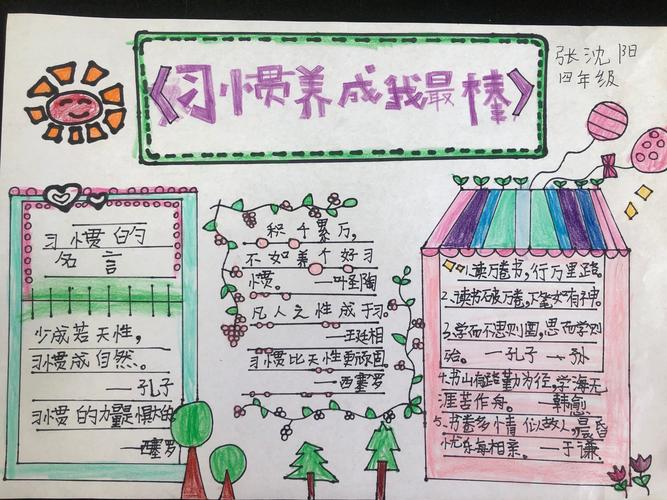 《习惯养成我最棒》
张沈阳
四年级
习惯的
名言
少成若天性，
习惯成自然。
——孔子
习惯的力量是惧大的
——西塞罗
积千累万，
不如养个好习
惯。——叶圣陶
凡人之性成于习。
——王廷相
习惯比天性更顽固。
——西塞罗
1.读万卷书，行万里路。
2.读书破万卷，下笔如有神。
3.学而不思则罔，思而不学则
殆。——孔子
4.书山有路勤为径，学海无
涯苦作舟。——韩愈
5、书卷多情似故人，晨昏
忧乐每相亲。——于谦